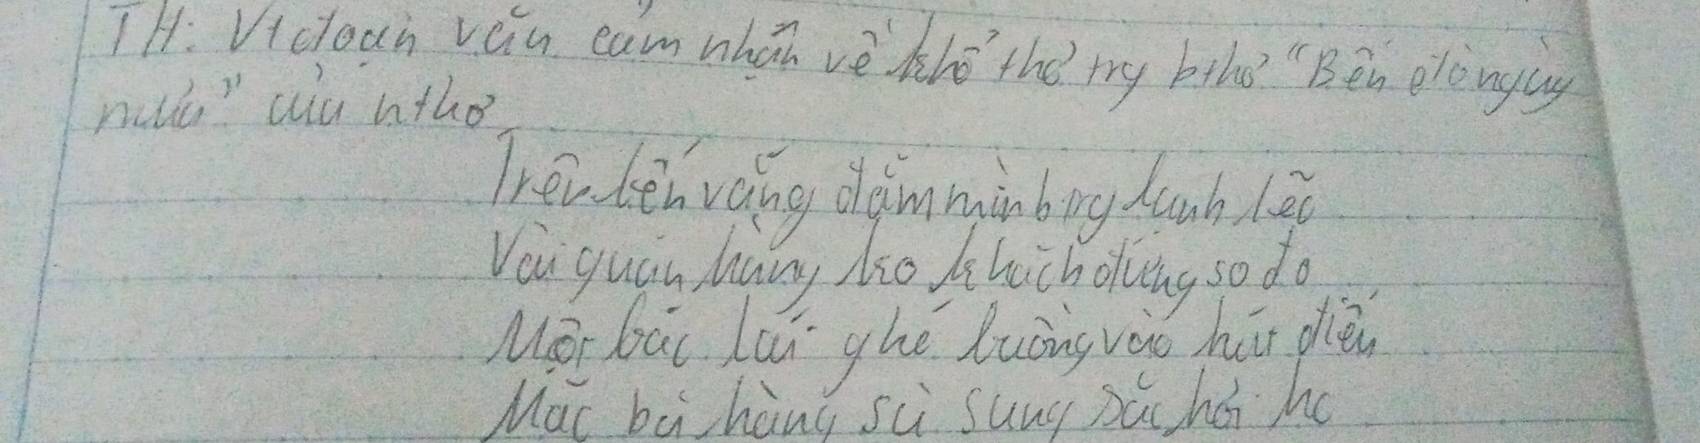 TH: Vt đoạn văn cảm nhận về khổ thơ trg bthơ "Bến đò ngày
mưa" của nthơ
Trên bến vắng đắm mình trg lạnh lẽo
Vài quán hàng ko khách đứng so đo
Một bác lái ghé buồng vào hút điếu
Mặc bà hàng sù sụng sặc hơi ho